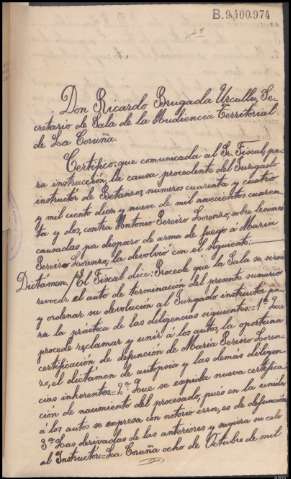 B.9,100,974
Don Ricardo Brugada Urcullu, Se-
cretario de Sala de la Audiencia Territorial
de La Coruña.
Certifico: que comunicada al Sr. Fiscal, pa-
ra instrucción, la causa procedente del Juzgado
instructor de Betanzos, números cuarenta y cuatro
y mil ciento diez y nueve de mil novecientos cuaren-
ta y dos, contra Antonio Pereiro Lorenzo, sobre lesiones
causadas por disparo de arma de fuego a María
Pereiro Lorenzo, la devolvió con el siguiente:
Dictámen/ El Fiscal dice: Procede que la Sala se sirva
revocar el auto de terminación del presente sumario
y ordenar su devolución al Juzgado instructor pa-
ra la práctica de las diligencias siguientes: 1ª Que
procede reclamar y unir á los autos, la oportuna
certificación de defunción de María Pereiro Loren-
zo, el dictámen de autopsia y las demás diligen-
cias inherentes. 2ª Que se expida nueva certifica-
ción de nacimiento del procesado, pues en la unida
á los autos se expresa con notorio error, es de defunción
3ª Las derivadas de las anteriores y sugiera su celo
al Instructor. La Coruña ocho de Octubre de mil